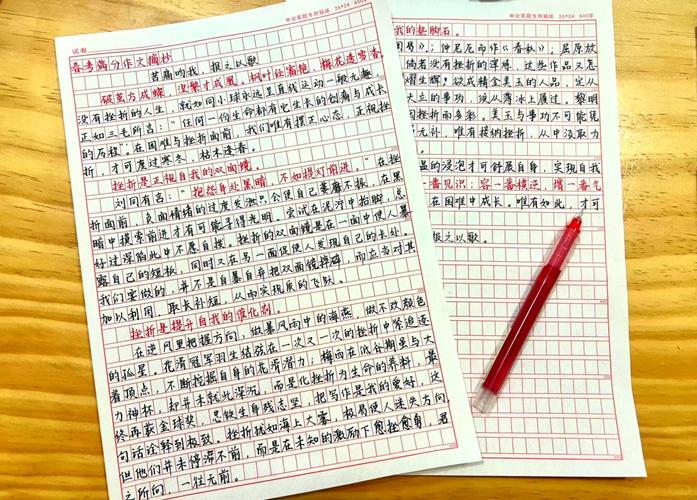 申论答题专用稿纸 25*24 600字
试卷
春考满分作文摘抄
苦痛吻我，报之以歌
破茧方成蝶，涅槃才成凰。枫叶经霜艳，梅花透雪香。
没有挫折的人生，就如同小球永远呈直线运动一般无趣，
正如三毛所言："任何一份生命都有它生长的创痛与成长
的历程"。在困难与挫折面前，我们唯有摆正心态，正视挫
折，才可度过寒冬，枯木逢春。
挫折是正视自我的双面镜。
刘同有言："抱怨身处黑暗，不如提灯前进。"在挫
折面前，负面情绪的过度发泄只会使自己萎靡不振，在黑
暗中摸索前进才有可能寻得光明。尝试在泥污中抬脚，总
好过深陷此中不愿自拔。挫折的双面镜是在一面中使人暴
露自己的短板，同时又在另一面促使人发现自己的长处。
我们要做的，并不是自暴自弃把双面镜摔碎，而应当对其
加以利用，取长补短，从而实现质的飞跃。
挫折是提升自我的催化剂。
在逆风里把握方向，做暴风雨中的海燕，做不改颜色
的孤星。花滑冠军羽生结弦在一次又一次的挫折中紧追逐
着顶点，不断挖掘自身的花滑潜力；梅西在低谷期虽与大
力神杯，却并未就此深沉，而是化挫折为生命的养料，最
终再获金球奖，史铁生身残志坚，把写作是我的爱好，这
句话诠释到极致。挫折犹如海上大雾，极易使人迷失方向，
但他们并未停滞不前，而是在未知的激励下愈挫愈勇，君
之所向，一往无前。
申论答题专用稿纸 25*24 600字
我的垫脚石。
周易》；仲尼厄而作《春秋》；屈原放
倘若没有挫折的淬炼，这些作品又怎
熠生辉；欲成精金美玉的人品，定从
天立的事功，须从薄冰上履过。黎明
因挫折而多彩。美玉与事功不可能凭
无补，唯有接纳挫折，从中汲取力
温的浸泡才可舒展自身，实现自我
一番见识；容一番横逆，增一番气
在困难中成长。唯有如此，才可
报之以歌。